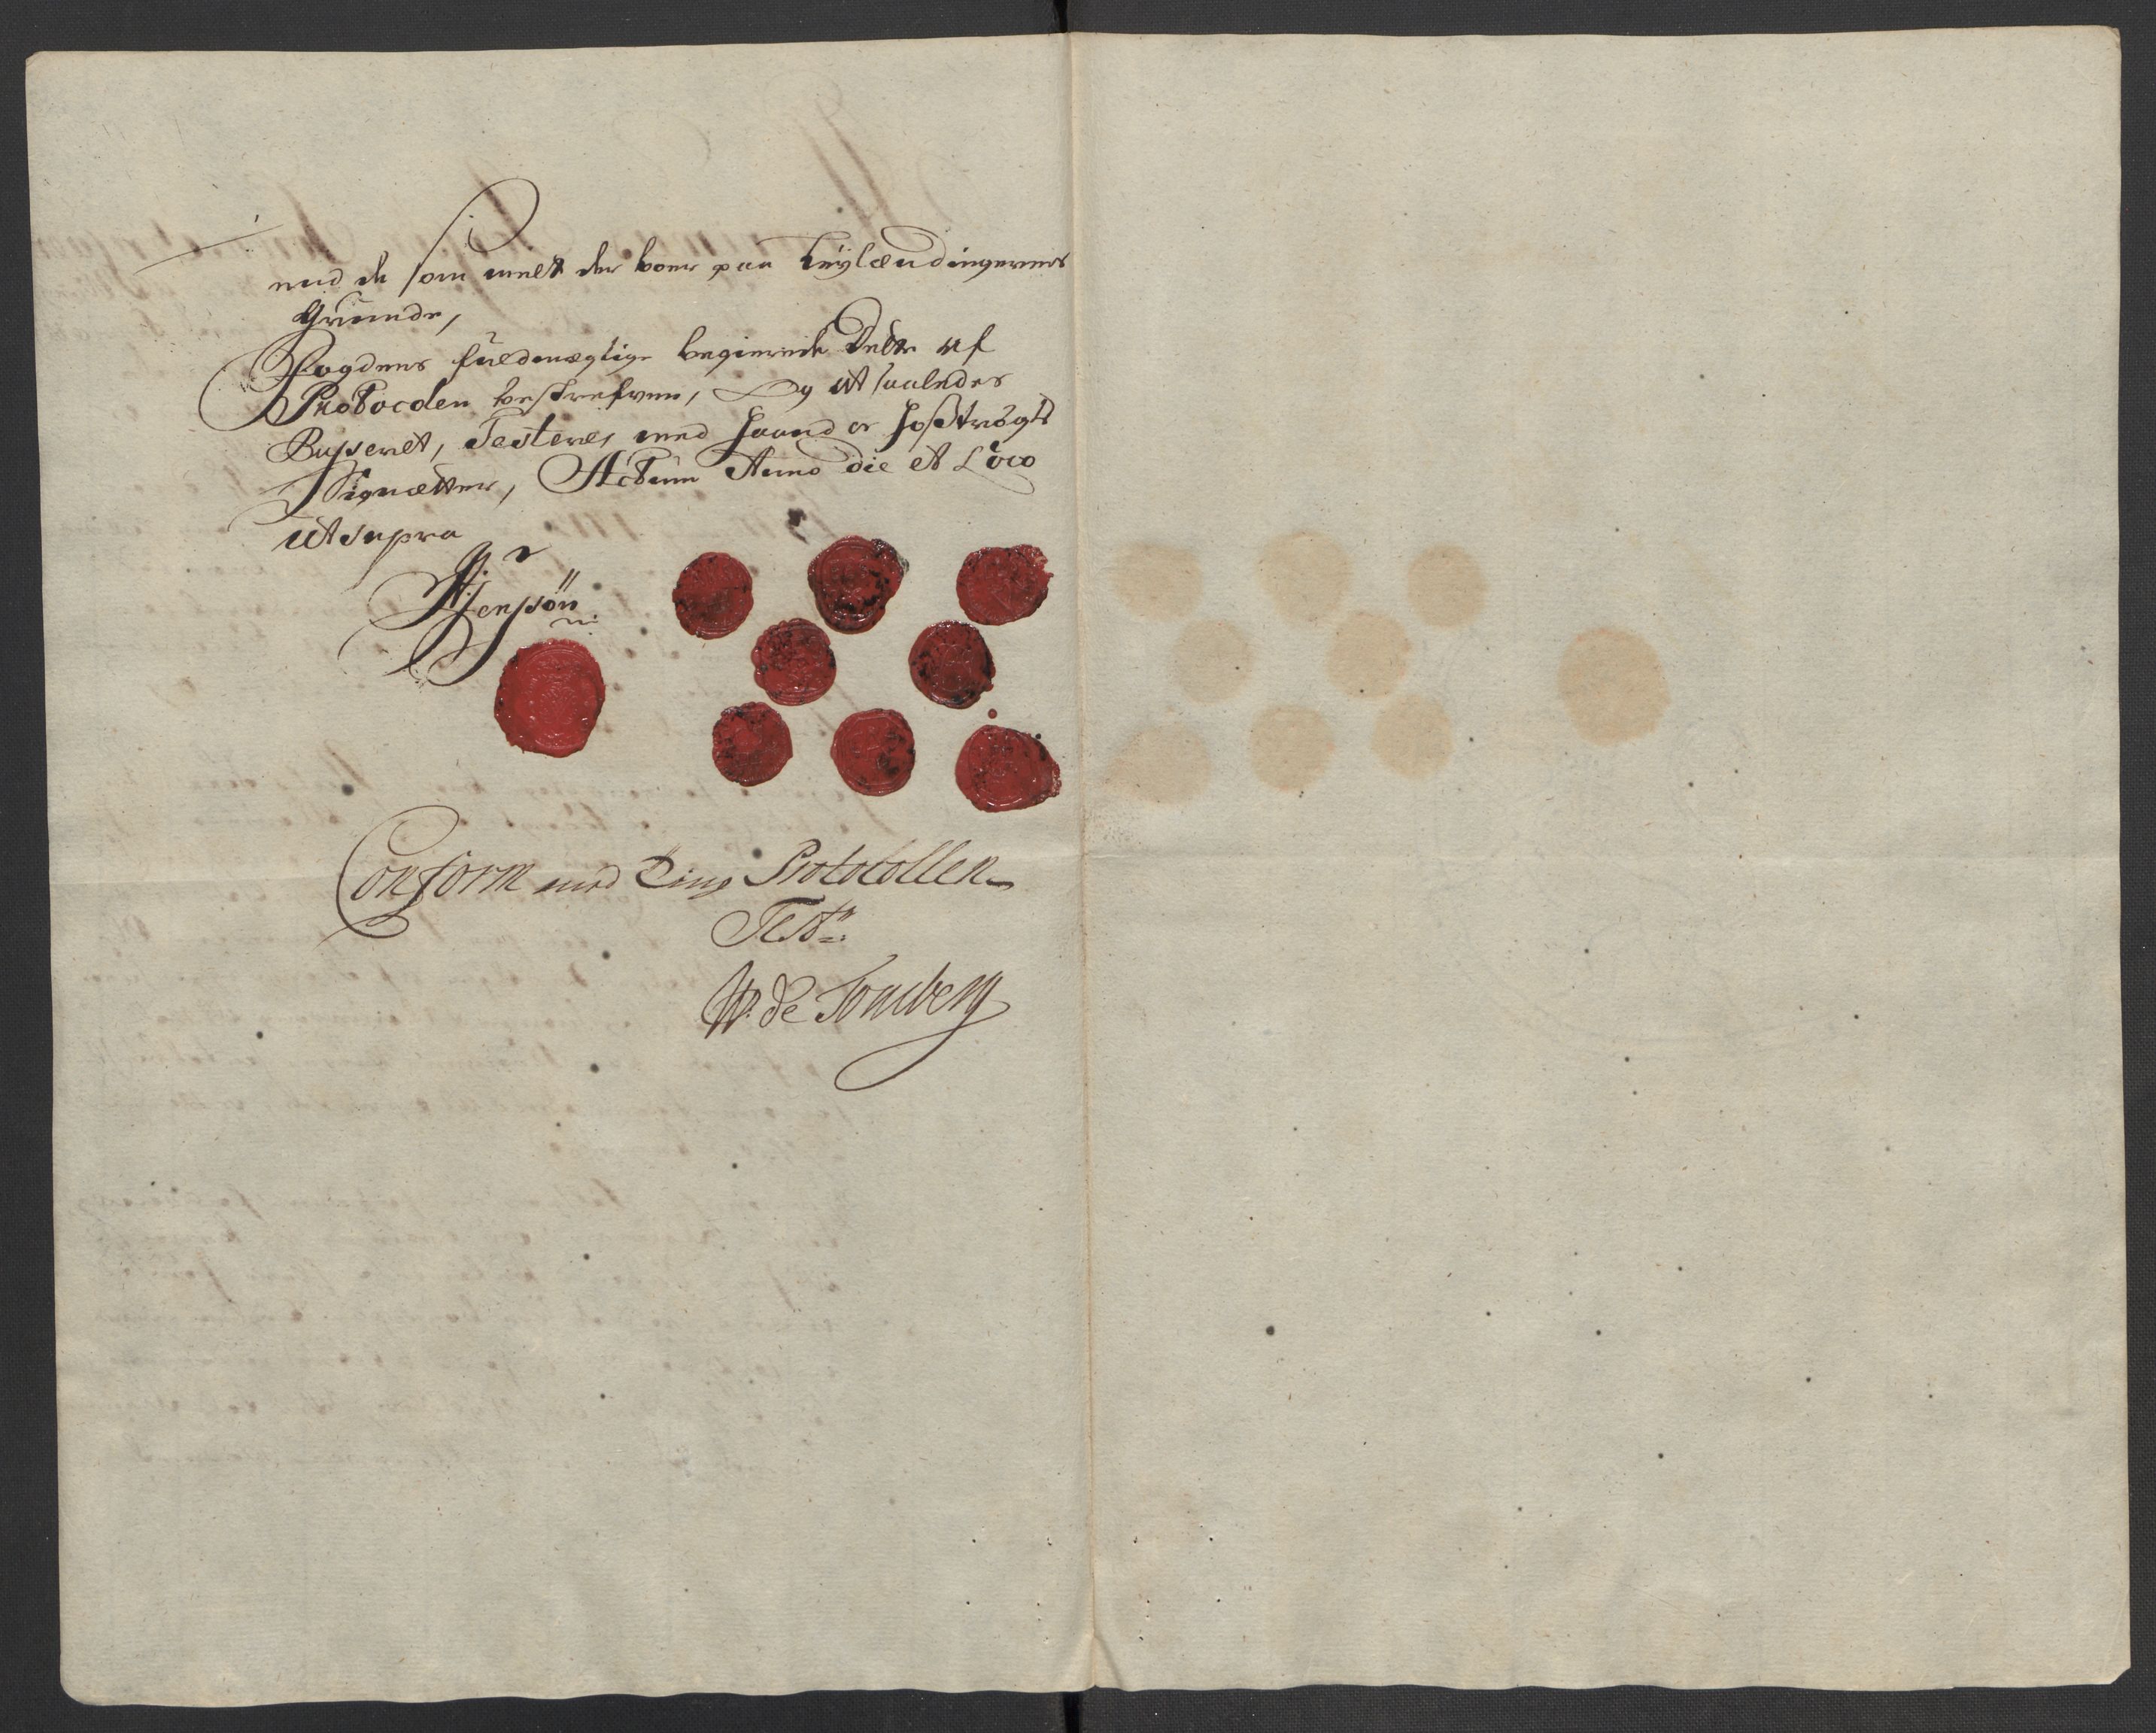 med de som melt der boer paa Leylændingernes
Grunde,
Fogdens fuldmægtige begierede Dette af
Protocolen beskrefven, Og at saaledes
Passeret, Testeres med haand og hoströgte
Signætter, Actum Anno die et Loco
ut supra
Jensön
Conform med Ting Protocollen
Test:
W. de Tonsberg